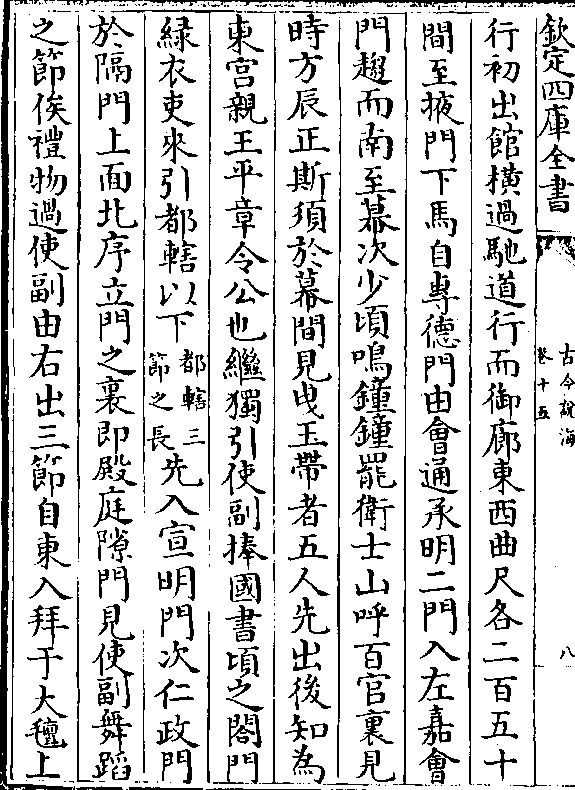 欽定四庫全書
古今說海
卷十五
八
行初出館橫過馳道行而御廊東西曲尺各二百五十
間至掖門下馬自專德門由會通承明二門入左嘉會
門趨而南至幕次少頃鳴鐘鐘罷衛士山呼百官裏見
時方辰正斯須於幕間見曳玉帶者五人先出後知為
東宮親王平章令公也繼獨引使副捧國書頃之閤門
緑衣吏來引都轄以下都轄三節之長先入宣明門次仁政門
於隔門上面北序立門之裏即殿庭隙門見使副舞蹈
之節俟禮物過使副由右出三節自東入拜于大氊上